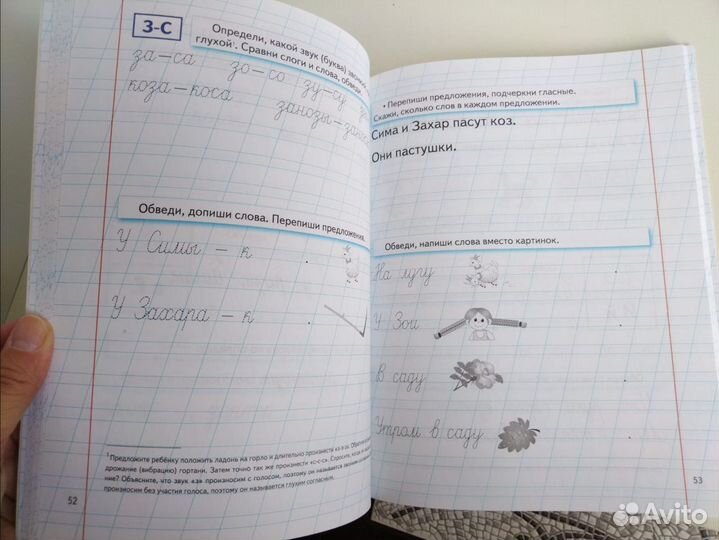 З-С
Определи, какой звук (буква)
глухой¹. Сравни слоги и слова, обведи
за – са зо – со зу – су
коза – коса
занозы –
Обведи, допиши слова. Перепиши предложения.
У Симы – к .
У Захара – к .
¹ Предложите ребёнку положить ладонь на горло и длительно произнести
дрожание (вибрацию) гортани. Затем точно так же произнести «с-с-с». Спросите,
ние? Объясните, что звук «з» произносим с голосом, поэтому он называется
произносим без участия голоса, поэтому он называется глухим согласным.
52
• Перепиши предложения, подчеркни гласные.
Скажи, сколько слов в каждом предложении.
Сима и Захар пасут коз.
Они пастушки.
Обведи, напиши слова вместо картинок.
На лугу .
У Зои .
В саду .
Утром в саду .
53
Avito